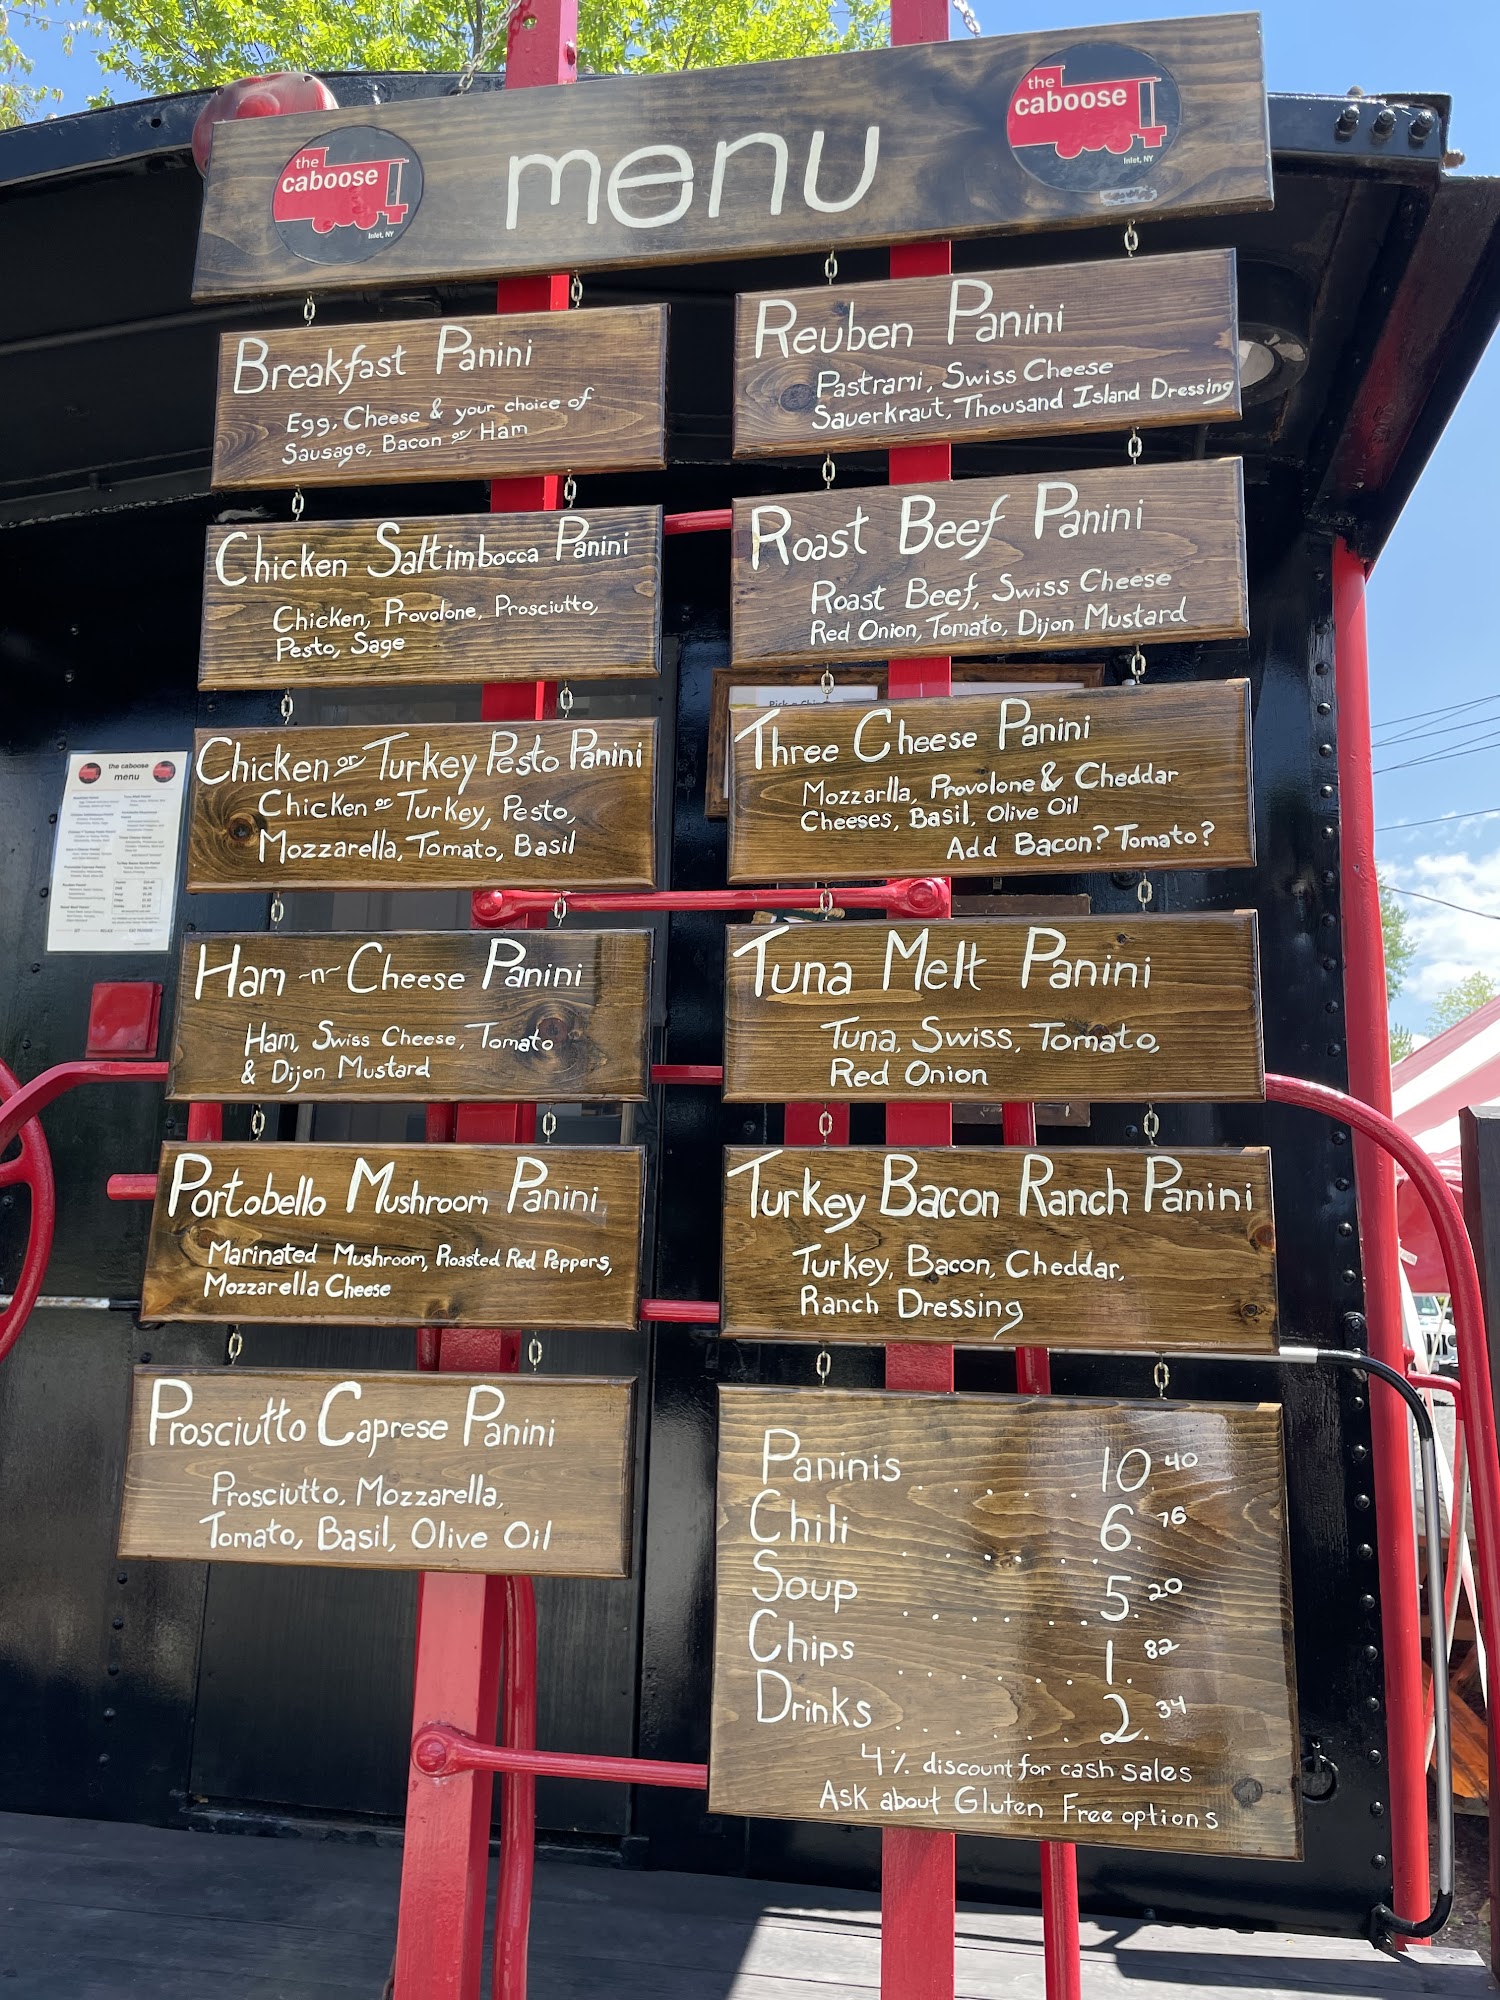 the
caboose
Inlet, NY
menu
the
caboose
Inlet, NY
Breakfast Panini
Egg, Cheese & your choice of
Sausage, Bacon or Ham
Chicken Saltimbocca Panini
Chicken, Provolone, Prosciutto,
Pesto, Sage
Chicken or Turkey Pesto Panini
Chicken or Turkey, Pesto,
Mozzarella, Tomato, Basil
Ham -n- Cheese Panini
Ham, Swiss Cheese, Tomato
& Dijon Mustard
Portobello Mushroom Panini
Marinated Mushroom, Roasted Red Peppers,
Mozzarella Cheese
Prosciutto Caprese Panini
Prosciutto, Mozzarella,
Tomato, Basil, Olive Oil
Reuben Panini
Pastrami, Swiss Cheese
Sauerkraut, Thousand Island Dressing
Roast Beef Panini
Roast Beef, Swiss Cheese
Red Onion, Tomato, Dijon Mustard
Three Cheese Panini
Mozzarlla, Provolone & Cheddar
Cheeses, Basil, Olive Oil
Add Bacon? Tomato?
Tuna Melt Panini
Tuna, Swiss, Tomato,
Red Onion
Turkey Bacon Ranch Panini
Turkey, Bacon, Cheddar,
Ranch Dressing
Paninis ...... 10.40
Chili ...... 6.76
Soup ...... 5.20
Chips ...... 1.82
Drinks ...... 2.34
4% discount for cash sales
Ask about Gluten Free options
the caboose
menu